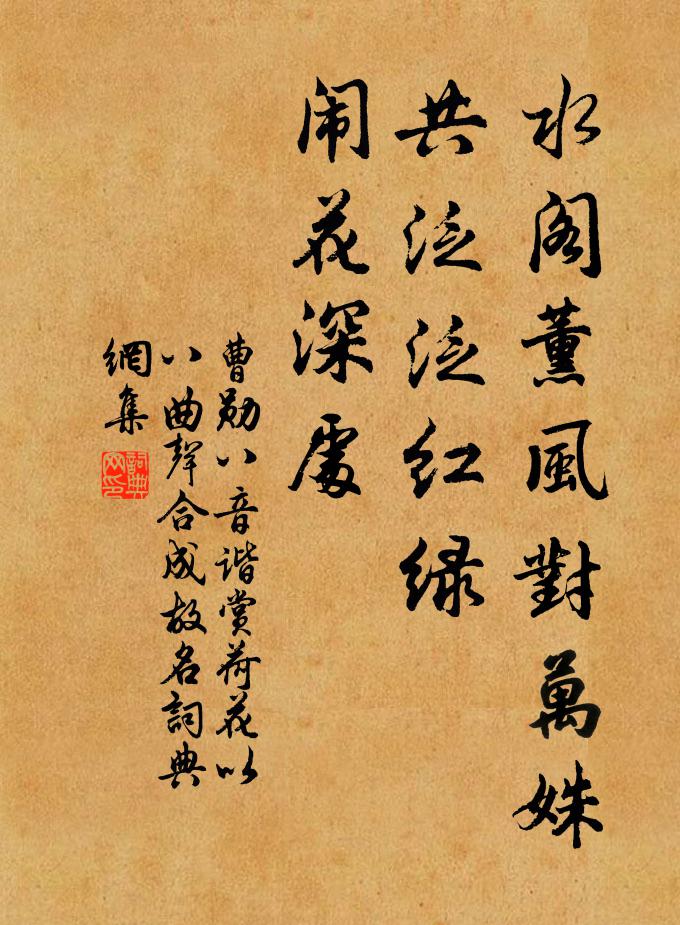 水阁薰風對萬姝
共泛泛红绿
闹花深處
曹勛八音谐賞荷花以
八曲聲合成故名詞典
網集
詞典网印